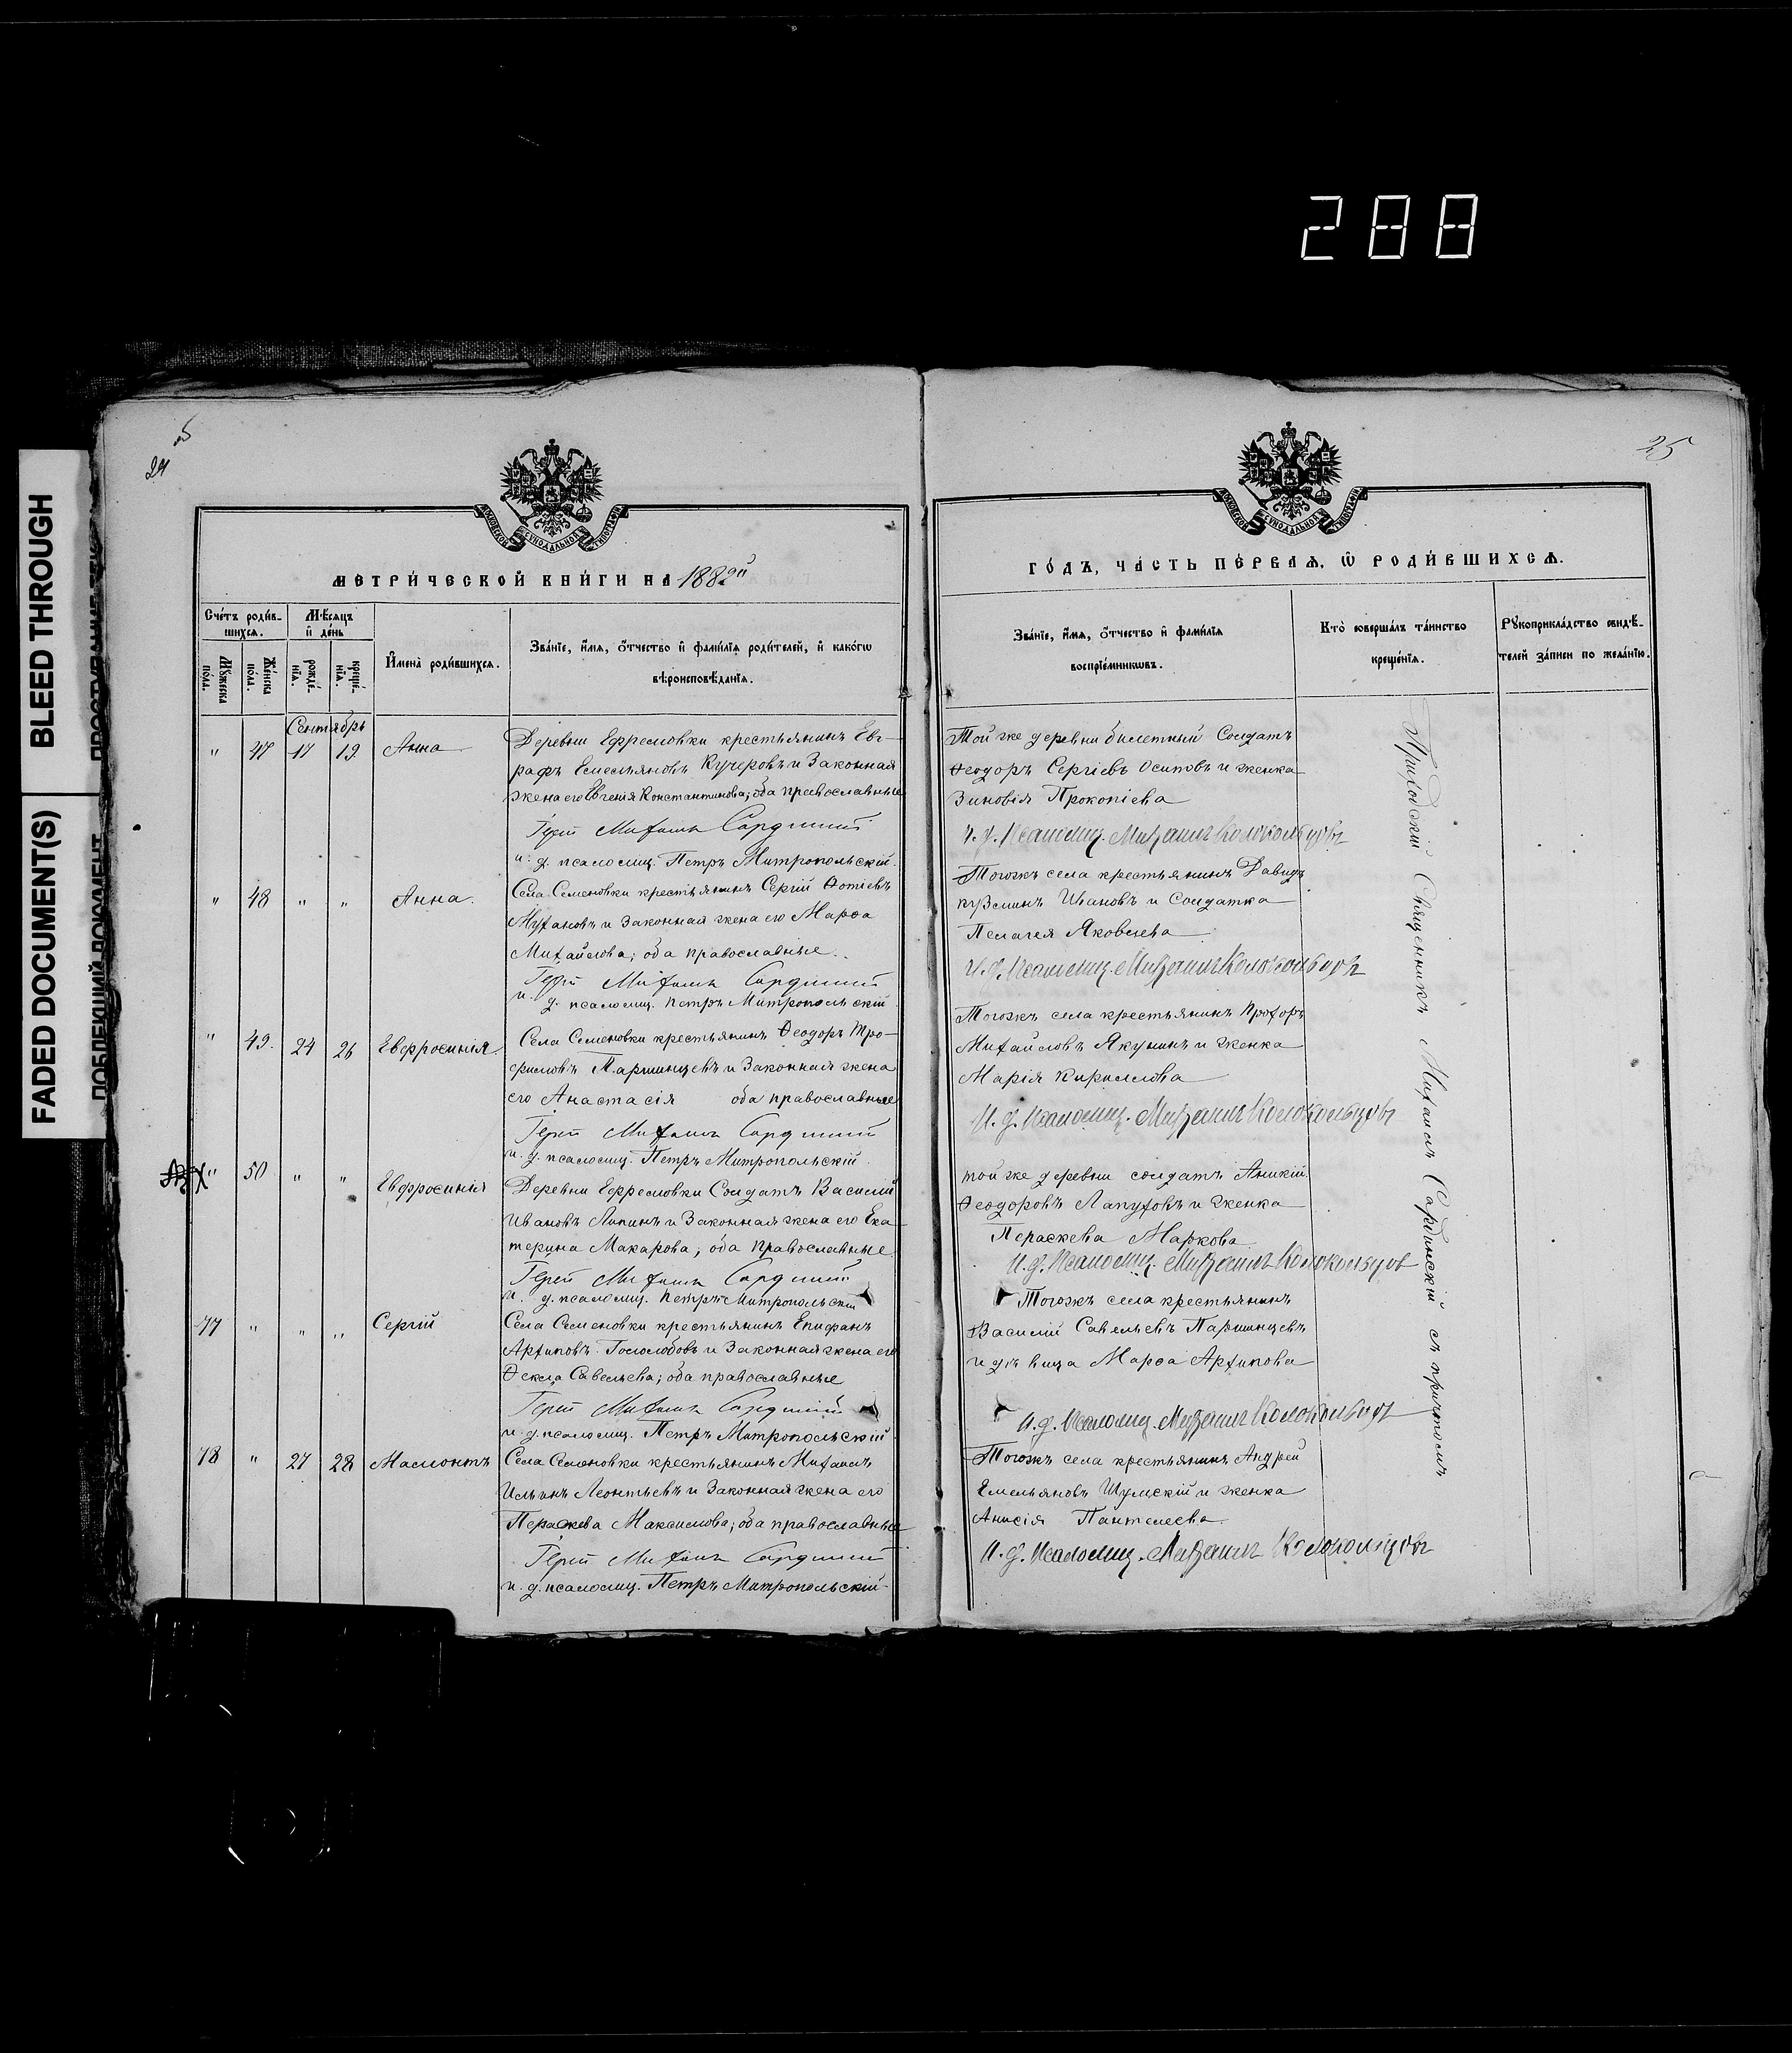 288
BLEED THROUGH
FADED DOCUMENT(S)
ПОБЛЕКШИЙ ДОКУМЕНТ
24
об
25
МОСКОВСКОЙ СѴНОДАЛЬНОЙ ТИПОГРАФІИ
МЕТРИ́ЧЕСКОЙ КНИ́ГИ НА 1882й
Сче́тъ роди́в-
шихся.
Мѣ́сяцъ
и҆ де́нь
Мꙋ́жеска по́ла.
Же́нска по́ла.
рожде́нїѧ.
креще́нїѧ.
И҆мена̀ роди́вшихся.
Зва́нїе, и҆́мѧ, ѻ҆́тчество и҆ фамѝлїѧ роди́телей, и҆ како́гѡ
вѣроисповѣ́данїѧ.
Сентябрь
" 47 17 19 Анна
Деревни Ефремовки крестьянинъ Евг-
рафъ Емельяновъ Кучеровъ и Законная
жена его Евгенія Константинова; оба православные
Іерей Михаилъ Сардинскій
и. д. псаломщ. Петръ Митропольскій.
" 48 " " Анна.
Села Семеновки крестьянинъ Сергій Ѳотіевъ
Мухановъ и Законная жена его Марѳа
Михайлова; оба православные.
Іерей Михаилъ Сардинскій
и. д. псаломщ. Петръ Митропольскій
" 49. 24 26 Евфросинія.
Села Семеновки крестьянинъ Ѳеодоръ Тро-
фимовъ Паршинцевъ и Законная жена
его Анастасія оба православные
Іерей Михаилъ Сардинскій
и. д. псаломщ. Петръ Митропольскій.
" 50 " " Евфросинія
Деревни Ефремовки Солдатъ Василій
Ивановъ Ляпинъ и Законная жена его Ека-
терина Макарова; оба православные.
Іерей Михаилъ Сардинскій
и. д. псаломщ. Петръ Митропольскій
77 " " " Сергій
Села Семеновки крестьянинъ Епифанъ
Архиповъ Гололобовъ и Законная жена его
Ѳекла Савельева; оба православные
Іерей Михаилъ Сардинскій
и. д. псаломщ. Петръ Митропольскій
78 " 27 28 Мамонтъ
Села Семеновки крестьянинъ Михаилъ
Ильинъ Леонтьевъ и Законная жена его
Параскева Максимова; оба православные
Іерей Михаилъ Сардинскій
и. д. псаломщ. Петръ Митропольскій
МОСКОВСКОЙ СѴНОДАЛЬНОЙ ТИПОГРАФІИ
ГО́ДЪ, ЧА́СТЬ ПЕ́РВАѦ, Ѡ҆ РОДИ́ВШИХСѦ.
Зва́нїе, и҆́мѧ, ѻ҆́тчество и҆ фамѝлїѧ
воспрїе́мникѡвъ.
Кто̀ соверша́лъ та́инство
креще́нїѧ.
Рꙋкоприкла́дство свидѣ́-
телей за́писи по жела́нїю.
Той же деревни билетный Солдатъ
Ѳеодоръ Сергіевъ Осиповъ и женка
Зиновія Прокопіева
И. д. Псаломщ. Михаилъ Колокольцовъ
Тогожъ села крестьянинъ Давидъ
Кузминъ Ивановъ и Солдатка
Пелагея Яковлева
И. д. Псаломщ. Михаилъ Колокольцовъ
Тогожъ села крестьянинъ Прохоръ
Михайловъ Якунинъ и женка
Марія Кириллова
И. д. Псаломщ. Михаилъ Колокольцовъ
той же деревни солдатъ Аникій
Ѳеодоровъ Лапуховъ и женка
Параскева Маркова
И. д. Псаломщ. Михаилъ Колокольцовъ
Тогожъ села крестьянинъ
Василій Савельевъ Паршинцевъ
и дѣвица Марѳа Архипова
И. д. Псаломщ. Михаилъ Колокольцовъ
Тогожъ села крестьянинъ Андрей
Емельяновъ Шумскій и женка
Анисія Пантелеева
И. д. Псаломщ. Михаилъ Колокольцовъ
Приходскій Священникъ Михаилъ Сардинскій съ причтомъ